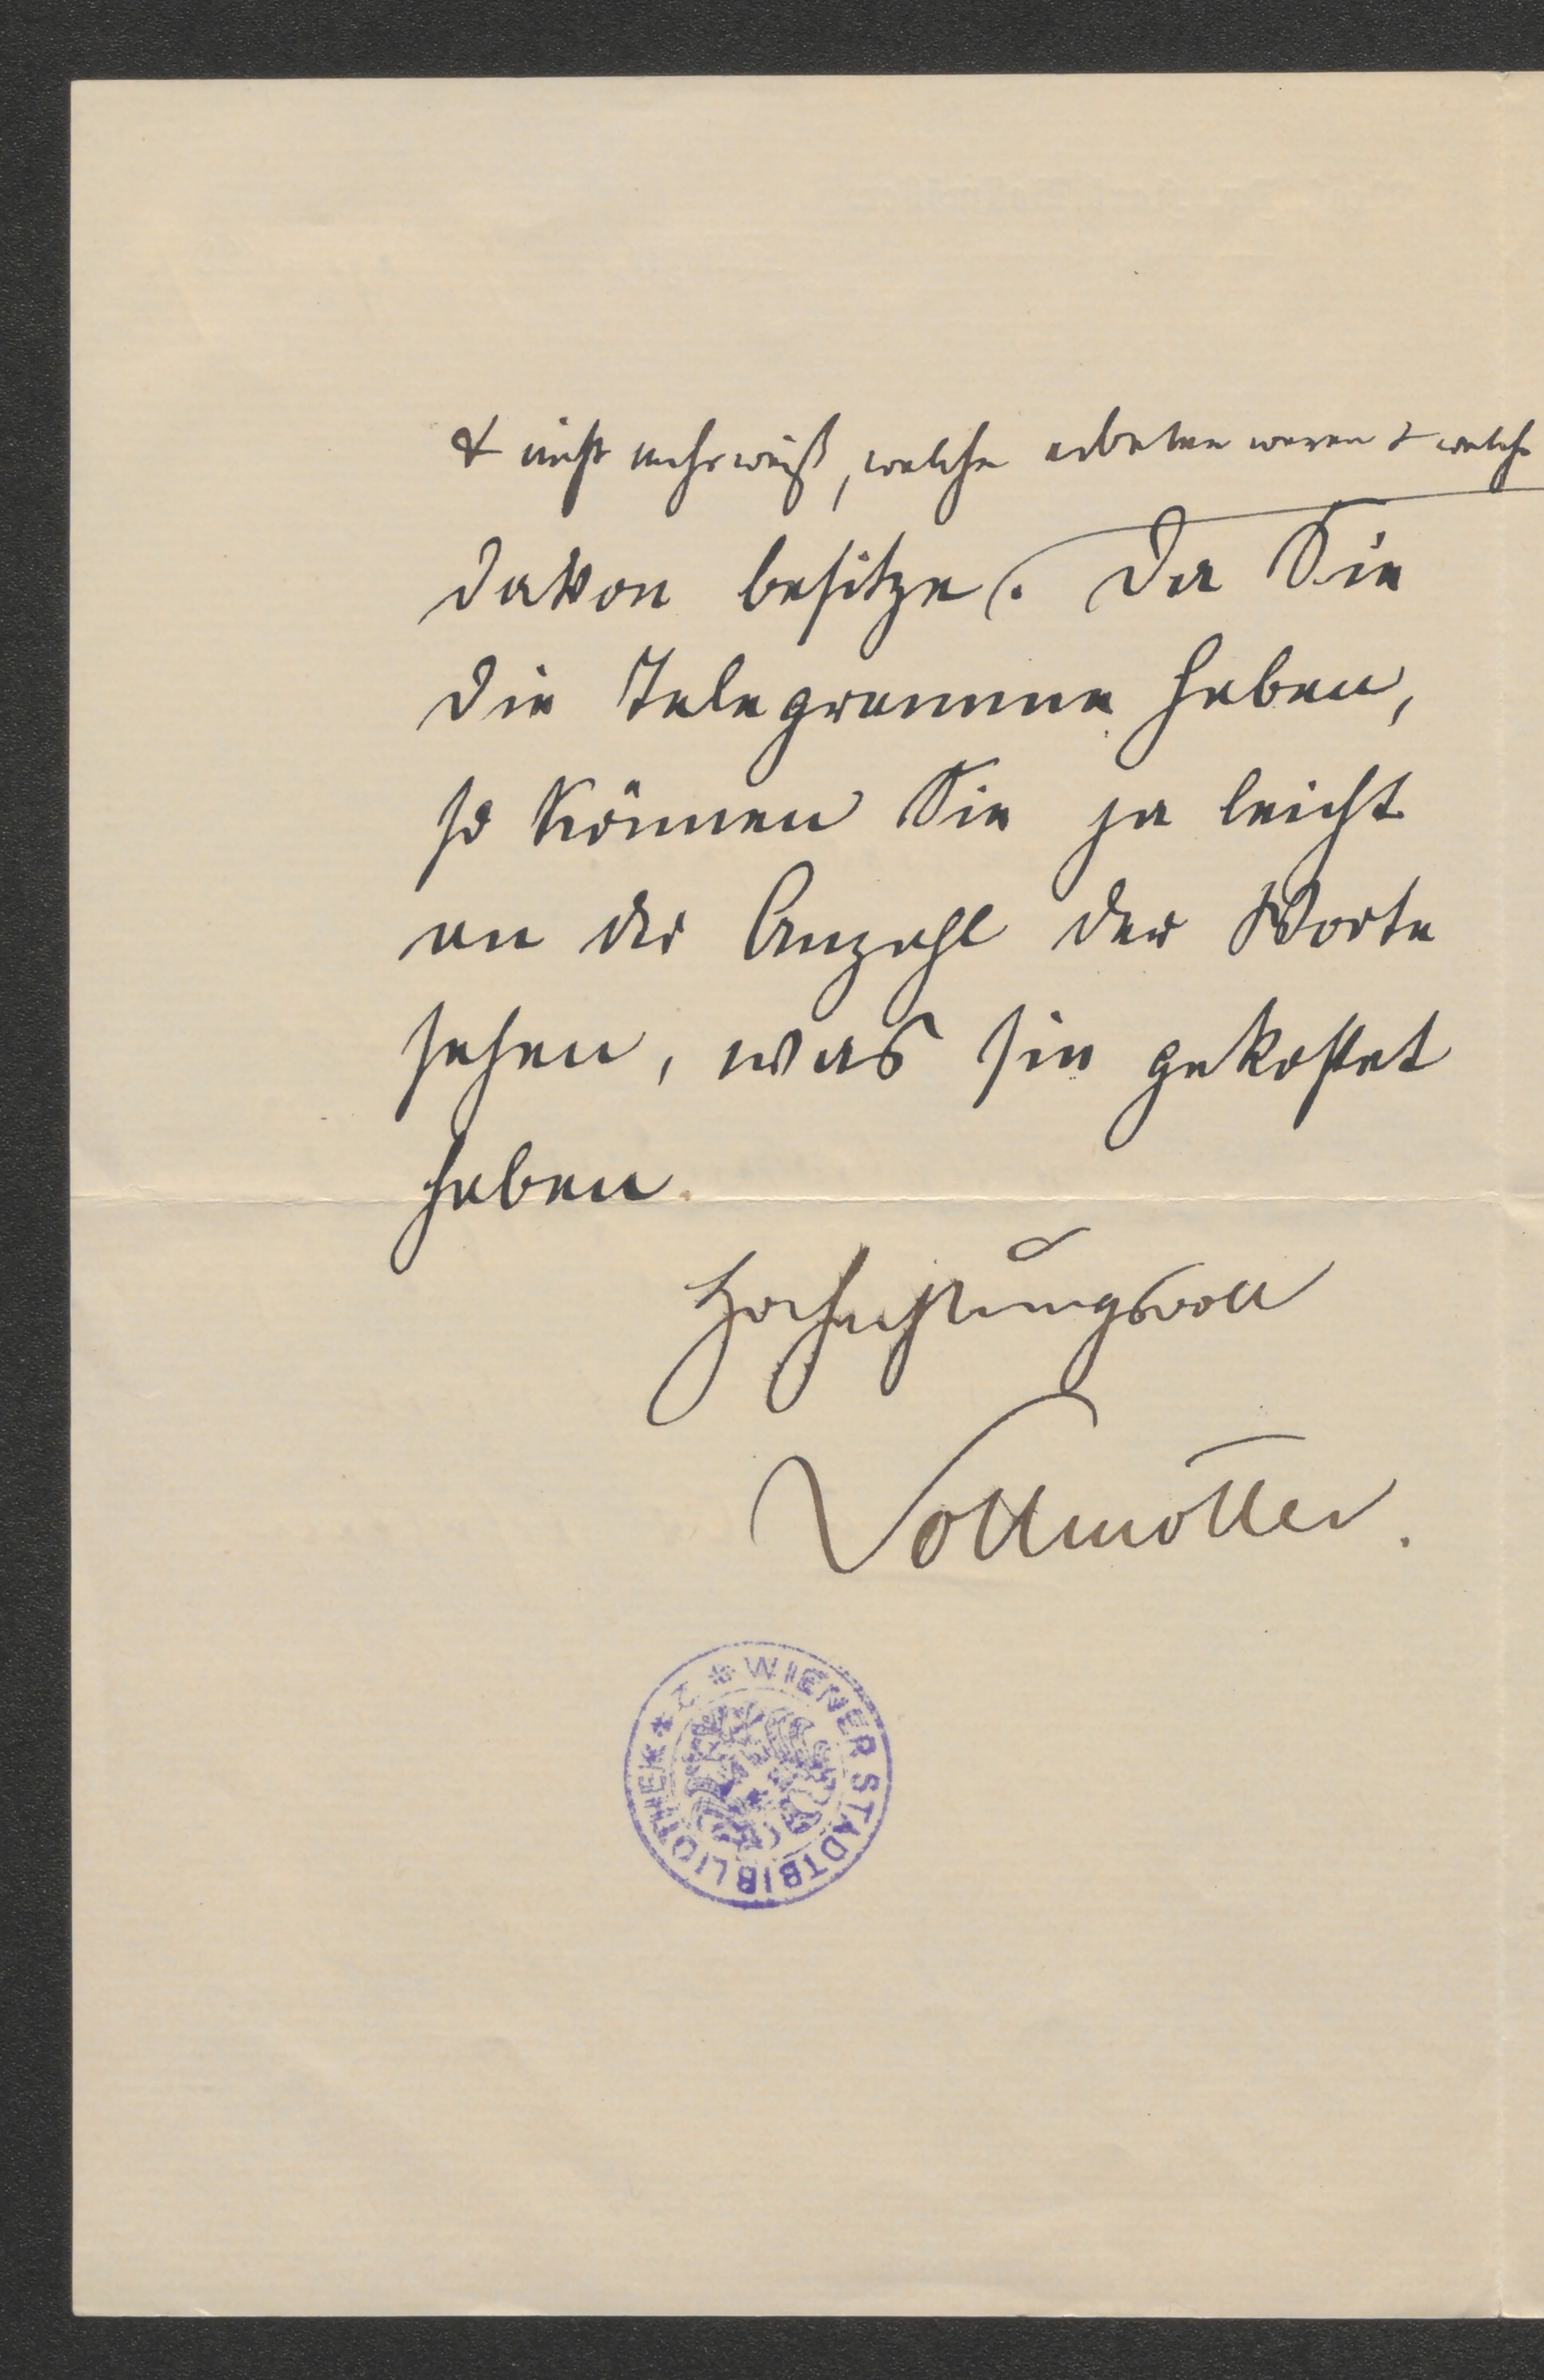 & nicht mehr weiß, welche erbeten waren & welche
davon besitze. Da Sie
die Telegramme haben,
so können Sie ja leicht
an der Anzahl der Worte
sehen, was sie gekostet
haben.
Hochachtungsvoll
Vollmöller.
WIENER STADTBIBLIOTHEK